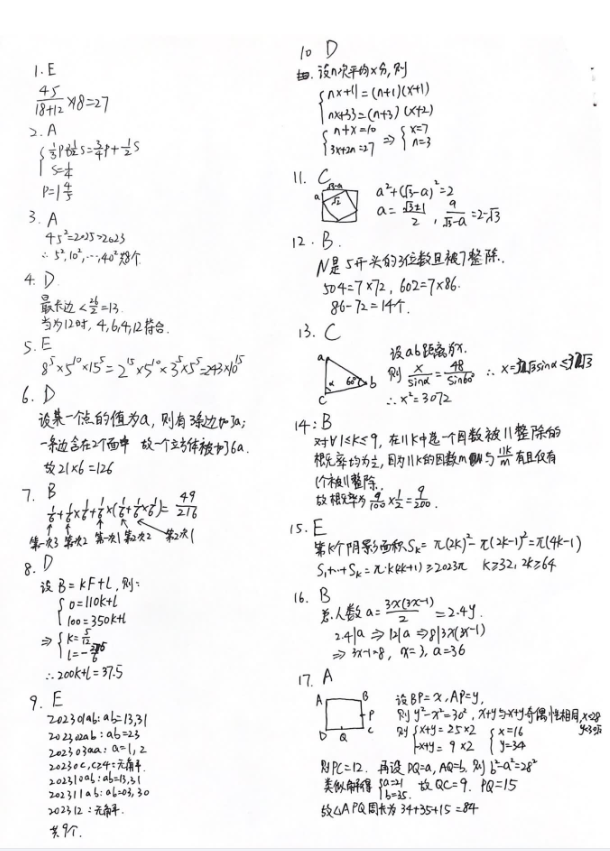 1. E
45/(18+12) ×18=27
2. A
S=1/4
3. A
45²=2025>2023
∴ 5², 10², …, 40² 共8个
4. D
最长边 < 26/2 =13.
当为12时, 4,6,4,12符合.
5. E
8⁵×5¹⁰×15⁵=2¹⁵×5¹⁰×3⁵×5⁵=243×10¹⁵
6. D
设某一点的值为a, 则有3条边加a;
一条边含在2个面中 故一个立方体被加6a.
故21×6=126
7. B
1/6+1/6×1/6+1/6×(1/6+1/6×1/6)=49/216
第一次3 第一次2 第一次1第二次2 第二次1
8. D
设 B=kF+l, 则:
0=110k+l
100=350k+l
∴200k+l=37.5
9. E
202301ab: ab=13,31
202302ab: ab=23
202303aa: a=1,2
202310ab: ab=13,31
202311ab: ab=03,30
202312: 无解.
共9个.
10 D
设n次平均x分, 则
nx+11=(n+1)(x+1)
nx+33=(n+3)(x+2)
n+x=10
3x+2n=27 ⇒ x=7
n=3
11. C
√3-a
a √2
a²+(√3-a)²=2
a=(√3±1)/2, a/(√3-a)=2-√3
12. B.
N是5开头的3位数且被7整除.
504=7×72, 602=7×86.
86-72=14个.
13. C
a
α 60° b
c
设ab距离为x.
则 x/sinα=48/sin60°
∴ x²=3072
14: B
对∀1≤k≤9, 在11k中选一个因数被11整除的
概率均为1/2, 因为11k的因数m与11k/m有且仅有
1个被11整除.
故概率为 9/100×1/2=9/200.
15. E
第k个阴影面积Sₖ=π(2k)²-π(2k-1)²=π(4k-1)
S₁+…+Sₖ=π·k(2k+1)≥2023π k≥32, 2k≥64
16. B
总人数a=3x(3x-1)/2=2.4y.
⇒ 3x-1=8, x=3, a=36
17. A
A B
P
D Q C
设BP=x, AP=y,
则y²-x²=30², x+y与x+y奇偶性相同,
x=16
y=34
则PC=12. 再设DQ=a, AQ=b. 则b²-a²=28²
类似解得 a=21
b=35. 故QC=9. PQ=15
故△APQ周长为34+35+15=84